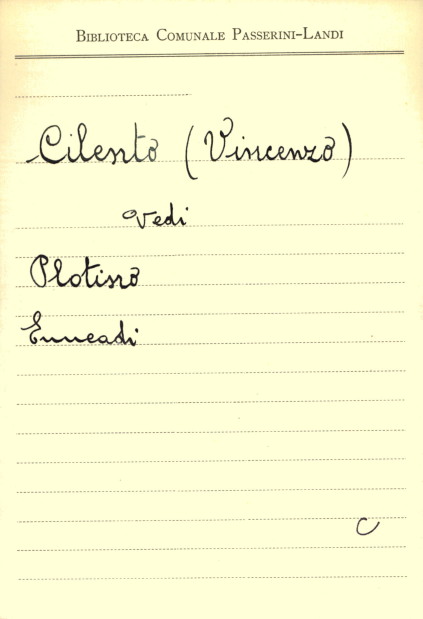 Biblioteca Comunale Passerini-Landi
Cilento (Vincenzo)
vedi
Plotino
Enneadi
C